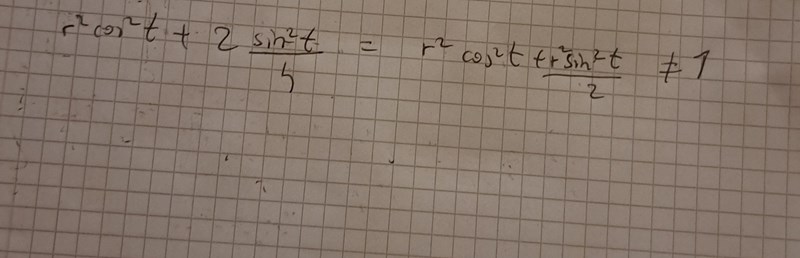 r² cos² t + 2 sin² t / 4 = r² cos² t + r² sin² t / 2 ≠ 1